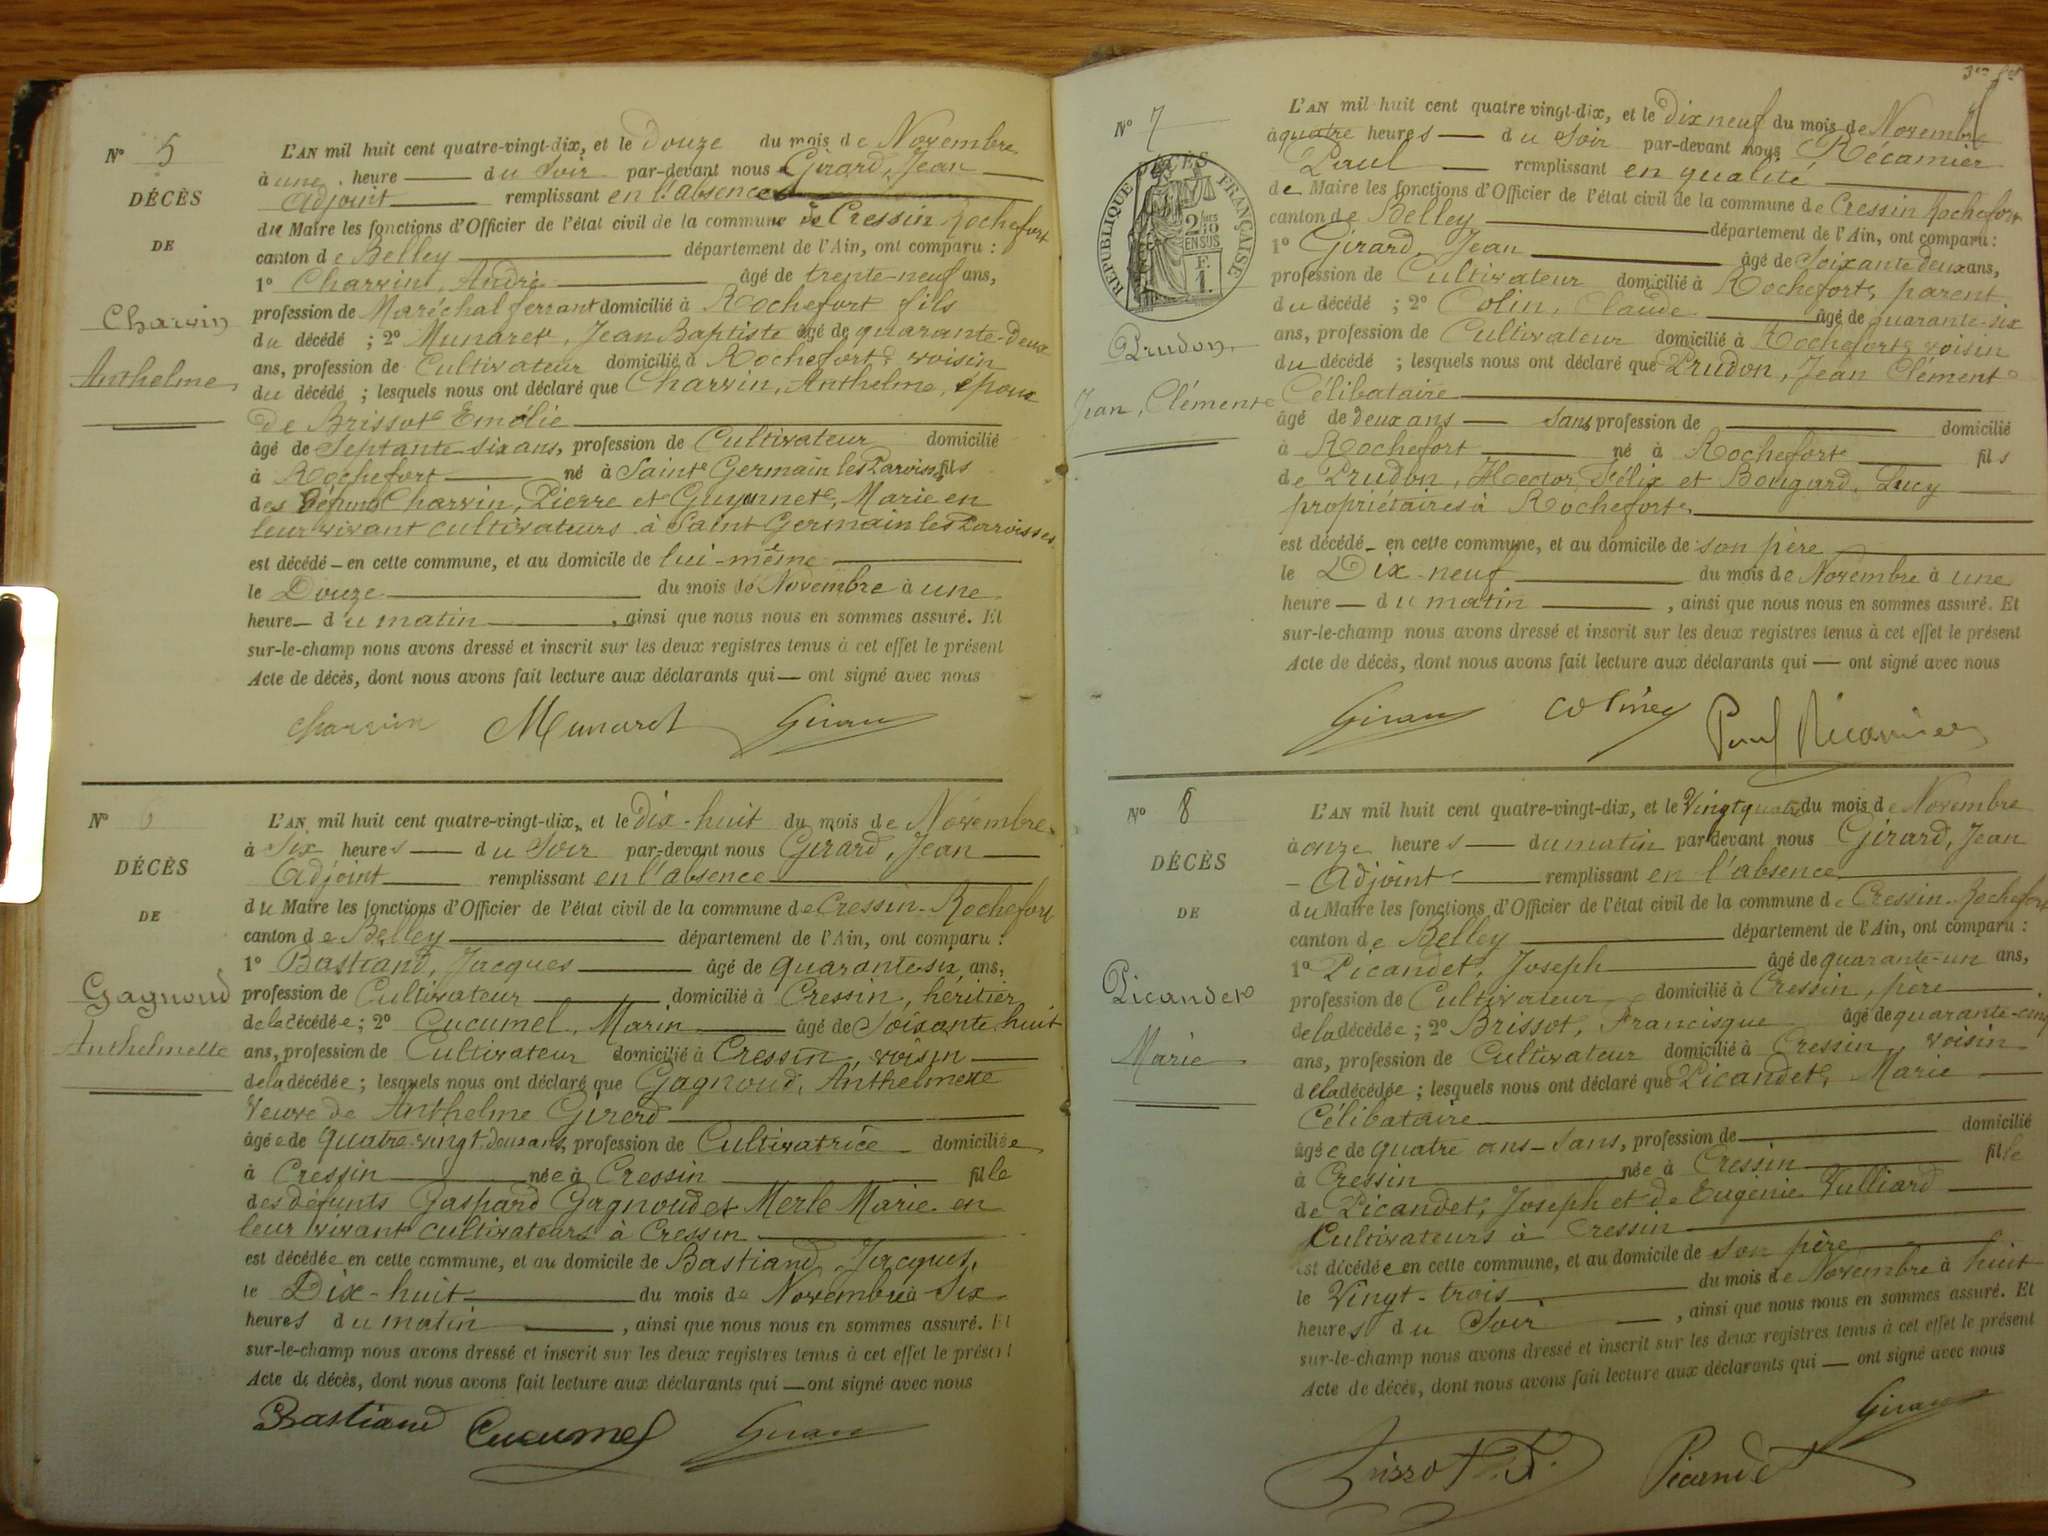 N° 5
DÉCÈS
DE
Charvin
Anthelme
L'AN mil huit cent quatre-vingt-dix, et le Douze du mois de Novembre
à une heure du Soir par-devant nous Girard, Jean
Adjoint remplissant en l'absence
du Maire les fonctions d'Officier de l'état civil de la commune de Cressin Rochefort
canton de Belley département de l'Ain, ont comparu :
1° Charvin, André âgé de trente-neuf ans,
profession de Maréchal ferrant domicilié à Rochefort fils
du décédé ; 2° Munaret, Jean Baptiste âgé de quarante-deux
ans, profession de Cultivateur domicilié à Rochefort voisin
du décédé ; lesquels nous ont déclaré que Charvin, Anthelme, époux
de Brissot Emélie
âgé de Septante-six ans, profession de Cultivateur domicilié
à Rochefort né à Saint Germain les Parois, fils
des défunts Charvin, Pierre et Guyonnet, Marie en
leur vivant cultivateurs à Saint Germain les Paroisses
est décédé en cette commune, et au domicile de lui-même
le Douze du mois de Novembre à une
heure du matin, ainsi que nous nous en sommes assuré. Et
sur-le-champ nous avons dressé et inscrit sur les deux registres tenus à cet effet le présent
Acte de décès, dont nous avons fait lecture aux déclarants qui — ont signé avec nous
Charvin Munaret Girard
N° 6
DÉCÈS
DE
Gagnoud
Anthelmette
L'AN mil huit cent quatre-vingt-dix, et le dix-huit du mois de Novembre
à Six heures du Soir par-devant nous Girard, Jean
Adjoint remplissant en l'absence
du Maire les fonctions d'Officier de l'état civil de la commune de Cressin-Rochefort
canton de Belley département de l'Ain, ont comparu :
1° Bastiand, Jacques âgé de quarante six ans,
profession de Cultivateur domicilié à Cressin, héritier
de la décédée ; 2° Cucumel, Marin âgé de Soixante huit
ans, profession de Cultivateur domicilié à Cressin, voisin
de la décédée ; lesquels nous ont déclaré que Gagnoud, Anthelmette
veuve de Anthelme Girerd
âgée de quatre-vingt-deux ans, profession de Cultivatrice domiciliée
à Cressin née à Cressin fille
des défunts Gaspard Gagnoud et Merle Marie en
leur vivant cultivateurs à Cressin
est décédée en cette commune, et au domicile de Bastiand, Jacques,
le Dix-huit du mois de Novembre à Six
heures du matin, ainsi que nous nous en sommes assuré. Et
sur-le-champ nous avons dressé et inscrit sur les deux registres tenus à cet effet le présent
Acte de décès, dont nous avons fait lecture aux déclarants qui — ont signé avec nous
Bastiand Cucumel Girard
N° 7
RÉPUBLIQUE FRANÇAISE
DÉCÈS
2/10 EN SUS
F. 1.
Prudon
Jean, Clément
L'AN mil huit cent quatre vingt-dix, et le Dix neuf du mois de Novembre
à quatre heures du Soir par-devant nous Récamier
Paul remplissant en qualité
de Maire les fonctions d'Officier de l'état civil de la commune de Cressin Rochefort
canton de Belley département de l'Ain, ont comparu :
1° Girard, Jean âgé de Soixante deux ans,
profession de Cultivateur domicilié à Rochefort, parent
du décédé ; 2° Colin, Claude âgé de quarante-six
ans, profession de Cultivateur domicilié à Rochefort, voisin
du décédé ; lesquels nous ont déclaré que Prudon, Jean Clément
Célibataire
âgé de deux ans — sans profession de domicilié
à Rochefort né à Rochefort fils
de Prudon, Hector Félix et Bougard, Lucy
propriétaires à Rochefort,
est décédé en cette commune, et au domicile de son père
le Dix-neuf du mois de Novembre à une
heure du matin, ainsi que nous nous en sommes assuré. Et
sur-le-champ nous avons dressé et inscrit sur les deux registres tenus à cet effet le présent
Acte de décès, dont nous avons fait lecture aux déclarants qui — ont signé avec nous
Girard Paul Récamier
N° 8
DÉCÈS
DE
Picandet
Marie
L'AN mil huit cent quatre-vingt-dix, et le Vingt quatre du mois de Novembre
à onze heures du matin par-devant nous Girard, Jean
Adjoint remplissant en l'absence
du Maire les fonctions d'Officier de l'état civil de la commune de Cressin-Rochefort
canton de Belley département de l'Ain, ont comparu :
1° Picandet, Joseph âgé de quarante-un ans,
profession de Cultivateur domicilié à Cressin, père
de la décédée ; 2° Brissot, Francisque âgé de quarante-cinq
ans, profession de Cultivateur domicilié à Cressin, voisin
de la décédée ; lesquels nous ont déclaré que Picandet, Marie
Célibataire
âgée de quatre ans — sans, profession de domicilié
à Cressin née à Cressin fille
de Picandet, Joseph et de Eugénie Vulliard
Cultivateurs à Cressin
est décédée en cette commune, et au domicile de son père
le Vingt-trois du mois de Novembre à huit
heures du Soir, ainsi que nous nous en sommes assuré. Et
sur-le-champ nous avons dressé et inscrit sur les deux registres tenus à cet effet le présent
Acte de décès, dont nous avons fait lecture aux déclarants qui — ont signé avec nous
Girard
Brissot F. Picandet